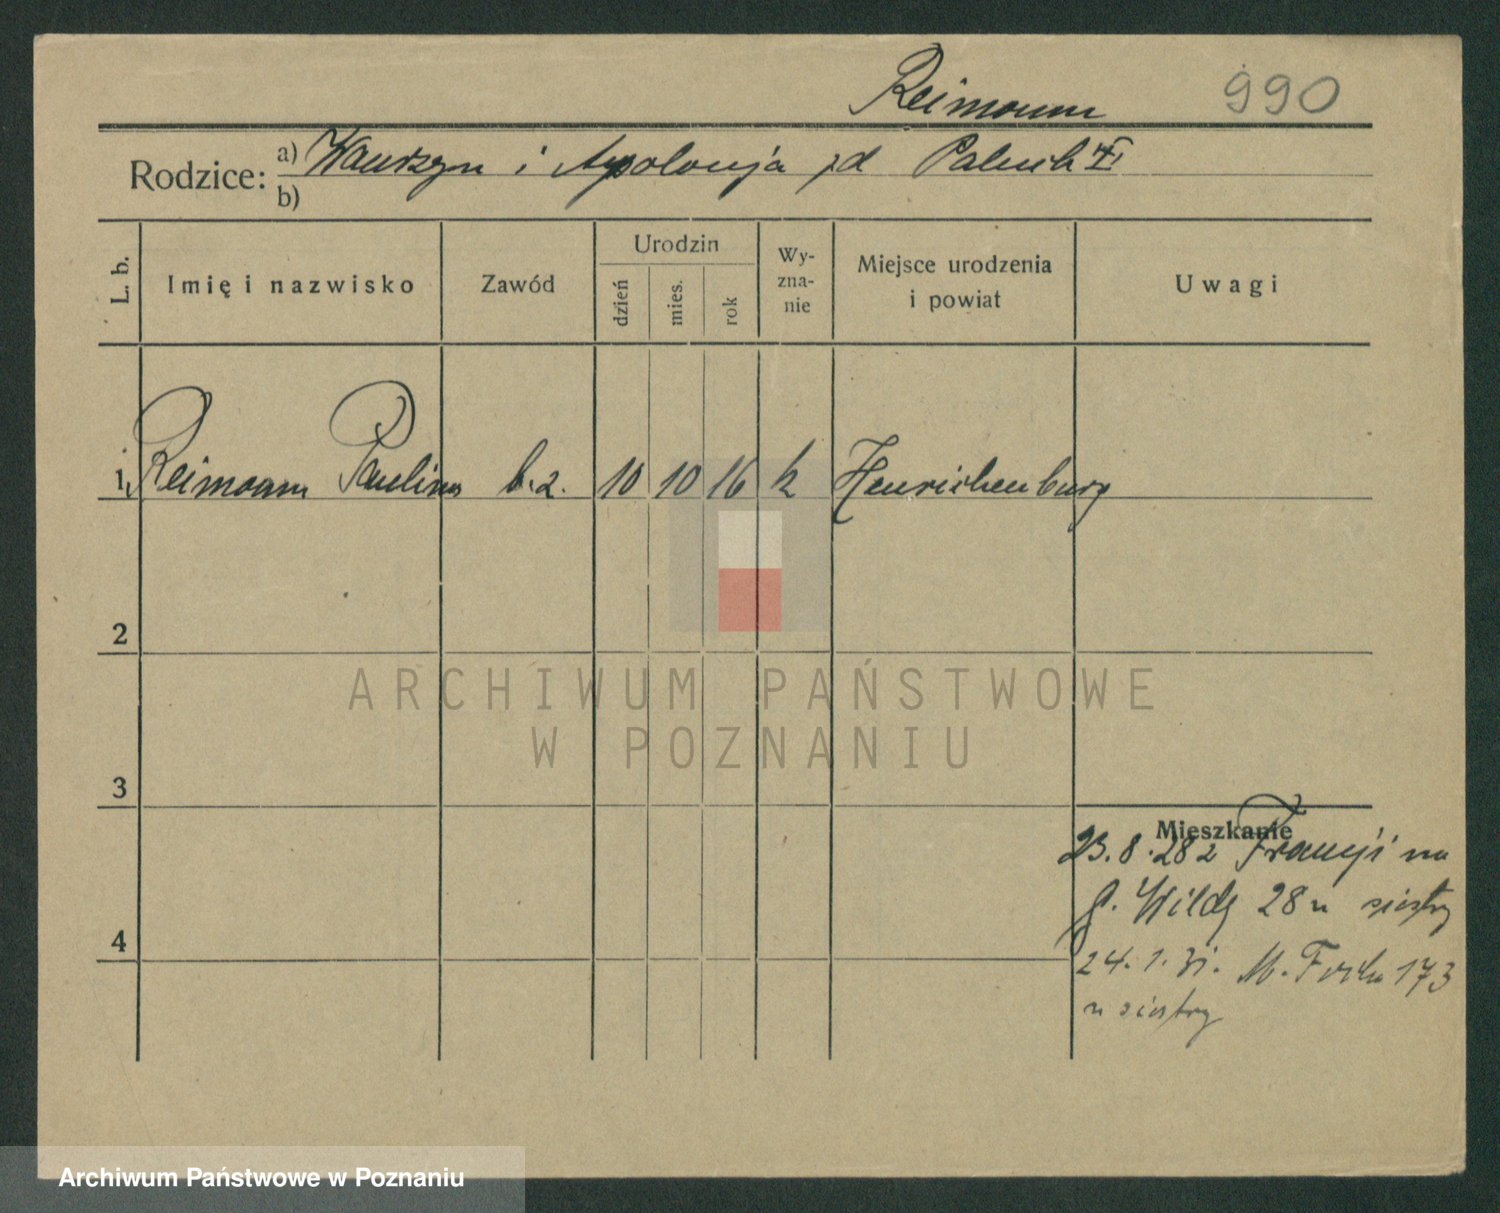 Reimann 990
Rodzice: a) Wawrzyn i Apolonja zd
b)
L. b.
Imię i nazwisko
Zawód
Urodzin
dzień
mies.
rok
Wy-
zna-
nie
Miejsce urodzenia
i powiat
Uwagi
1 Reimann Paulina b.z. 10 10 16 k Henrichenburg
2
3
4
Mieszkanie
23.8.28 z Francji na
G. Wildę 28 u siostry
24.1.31. M. Focha 173
u siostry
ARCHIWUM PAŃSTWOWE
W POZNANIU
Archiwum Państwowe w Poznaniu